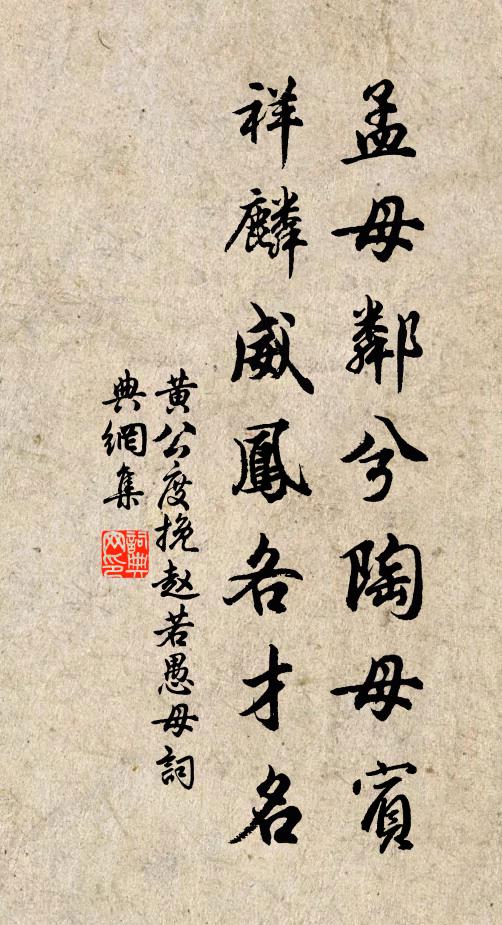 孟母鄰兮陶母賓
祥麟威鳳各才名
黃公度挽趙若愚母詞
典網集
詞典網印